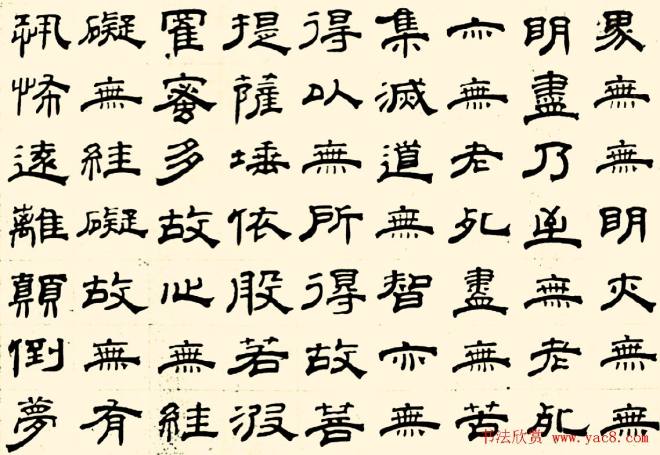 界無無明亦無無
明盡乃至無老死
亦無老死盡無苦
集滅道無智亦無
得以無所得故菩
提薩埵依般若波
羅蜜多故心無絓
礙無絓礙故無有
恐怖遠離顛倒夢
书法欣赏 www.yac8.com